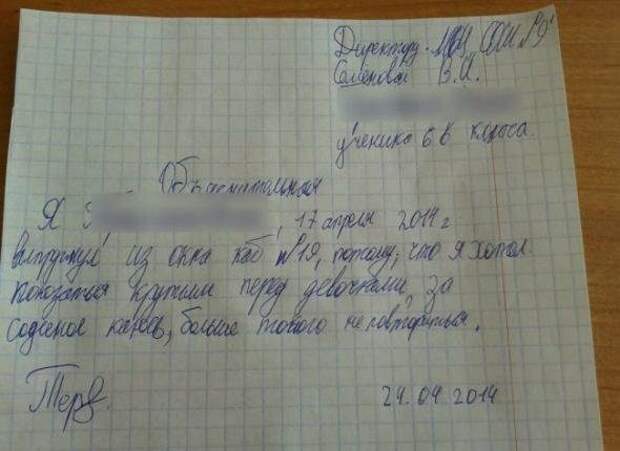 Директору МОУ СОШ №9
Семеновой В.И.
ученика 6 в класса.
Объяснительная
Я , 17 апреля 2014 г
выпрыгнул из окна каб №19, потому, что я хотел
показаться крутым перед девочками, за
содееное каюсь, больше такого не повториться.
24.04 2014